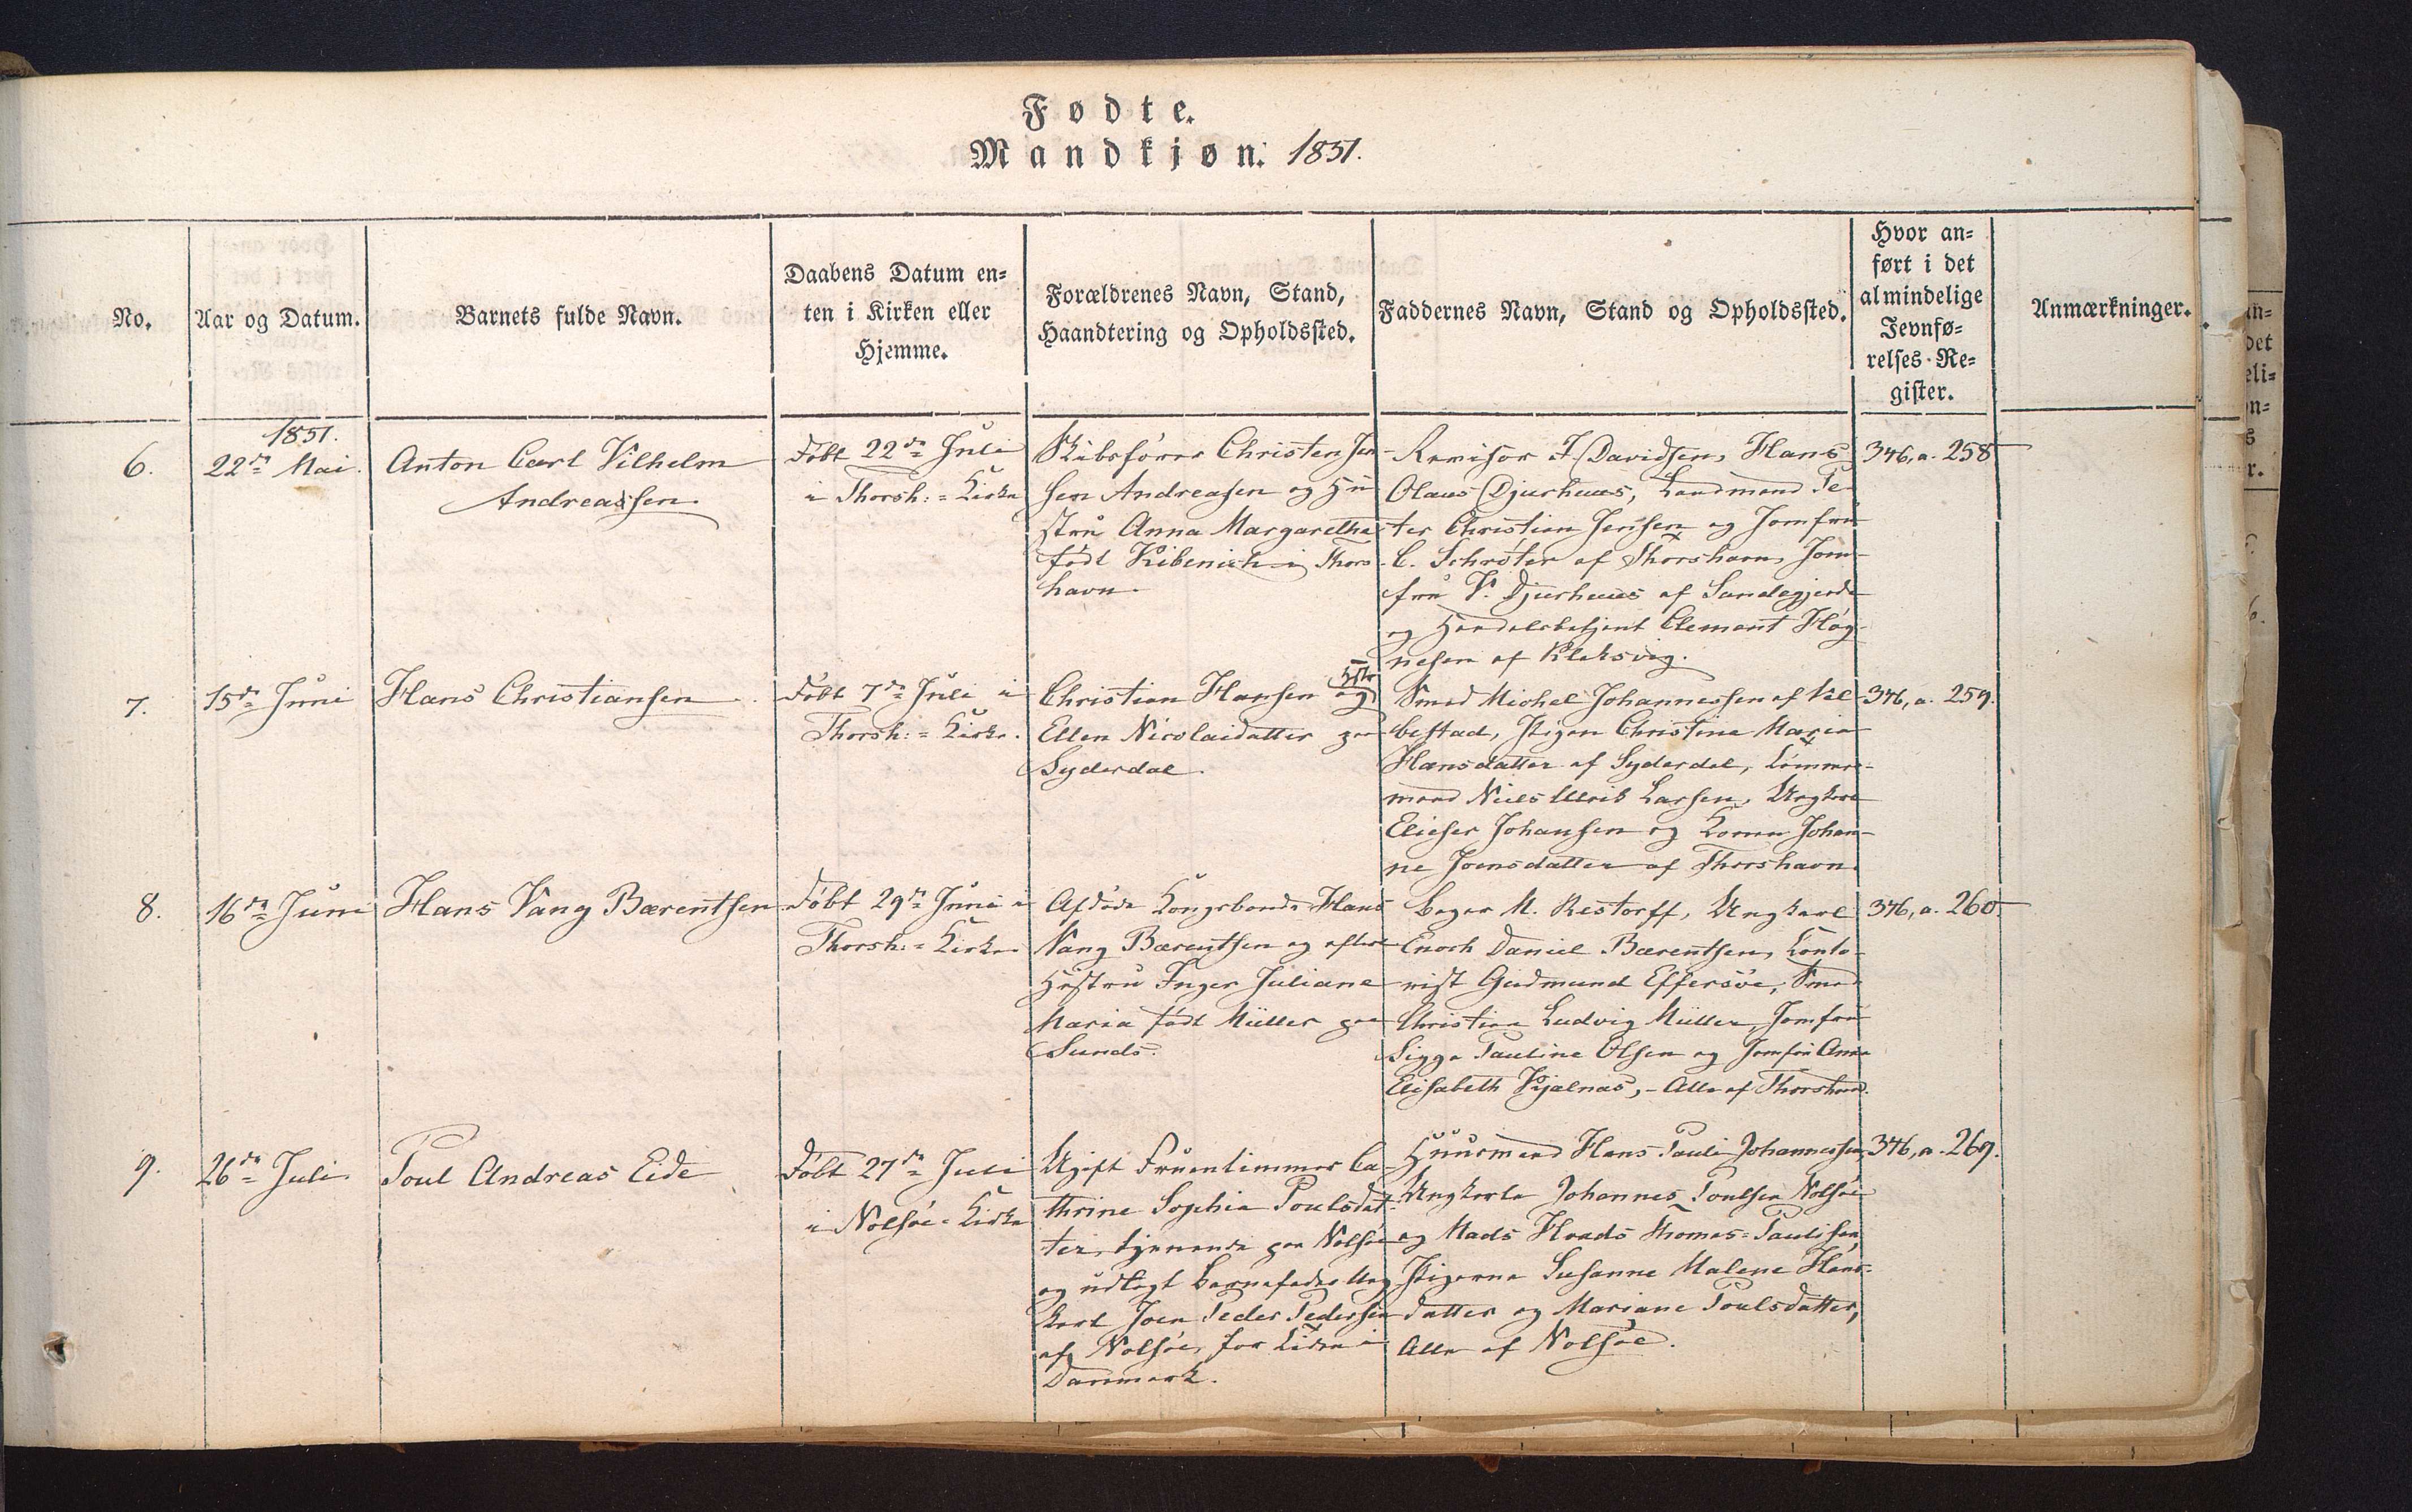 Fødte.
Mandkjøn. 1851.
No.
Aar og Datum.
Barnets fulde Navn.
Daabens Datum en-
ten i Kirken eller
Hjemme.
Forældrenes Navn, Stand,
Haandtering og Opholdssted.
Faddernes Navn, Stand og Opholdssted.
Hvor an-
ført i det
almindelige
Jevnfø-
relses-Re-
gister.
Anmærkninger.
1851.
6.
22de Mai.
Anton Carl Vilhelm
Andreassen
Døbt 22de Juli
i Thorsh:=Kirke
Skibsfører Christen Jen-
sen Andreasen og Hu-
stru Anna Margaretha
født Kibenich i Thors-
havn.
Revisor J. Davidsen, Hans
Olaus Djurhuus, Landmand Pe-
ter Christian Jensen og Jomfru
C. Schrøter af Thorshavn, Jom-
fru V. Djurhuus af Sandegjerde
og Handelsbetjent Clement Høg-
nesen af Klaksvig.
346, a. 258
7.
15de Juni
Hans Christiansen
Døbt 7de Juli i
Thorsh:=Kirke.
Christian Hansen og Hstr
Ellen Nicolaidatter paa
Syderdal.
Smed Michel Johannessen af Vel-
bestad, Pigen Christine Maria
Hansdatter af Syderdal, Tømmer-
mand Niels Ulrik Larsen, Ungkarl
Elieser Johansen og Konen Johan-
ne Joensdatter af Thorshavn.
346, a. 259.
8.
16de Juni
Hans Vang Bærentsen
Døbt 29de Juni i
Thorsh:=Kirke
Afdøde Kongsbonde Hans
Vang Bærentsen og efterl.
Hustru Inger Juliane
Maria født Müller paa
Sunds.
Bager M. Restorff, Ungkarl
Enoch Daniel Bærentsen, Konto-
rist Gudmund Effersöe, Smed
Christian Ludvig Müller, Jomfru
Sigga Pauline Olsen og Jomfru Anna
Elisabeth Kjælnæs, - Alle af Thorshavn.
346, a. 260.
9.
26de Juli
Poul Andreas Eide
Døbt 27de Juli
i Nolsöe=Kirke
Ugift Fruentimmer Ca-
thrine Sophia Poulsdat-
ter, tjenende paa Nolsöe
og udlagt Barnefader Ung-
karl Joen Peder Pedersen
af Nolsöe, for Tiden i
Danmark.
Huusmand Hans Pauli Johannessen,
Ungkarle Johannes Poulsen Nolsöe
og Mads Thomas=Paulisen,
Pigerne Susanne Malene Hans-
datter og Mariane Poulsdatter,
Alle af Nolsöe.
346, a. 269.